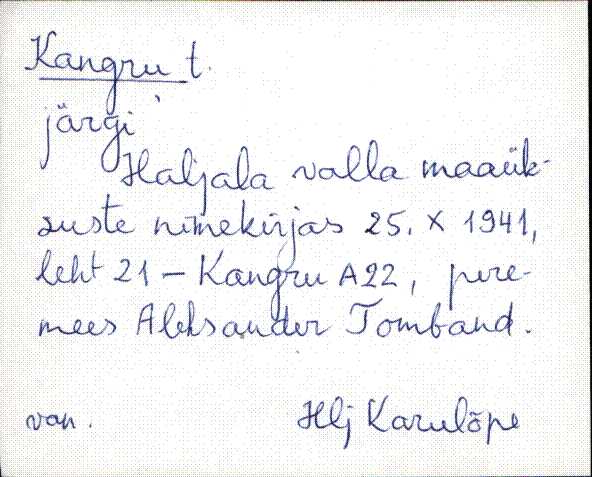 Kangru t.
järgi
Haljala valla maaük-
suste nimekirjas 25. X 1941,
leht 21 – Kangru A22, pere-
mees Aleksander Tomband.
van. Hlj Karulõpe